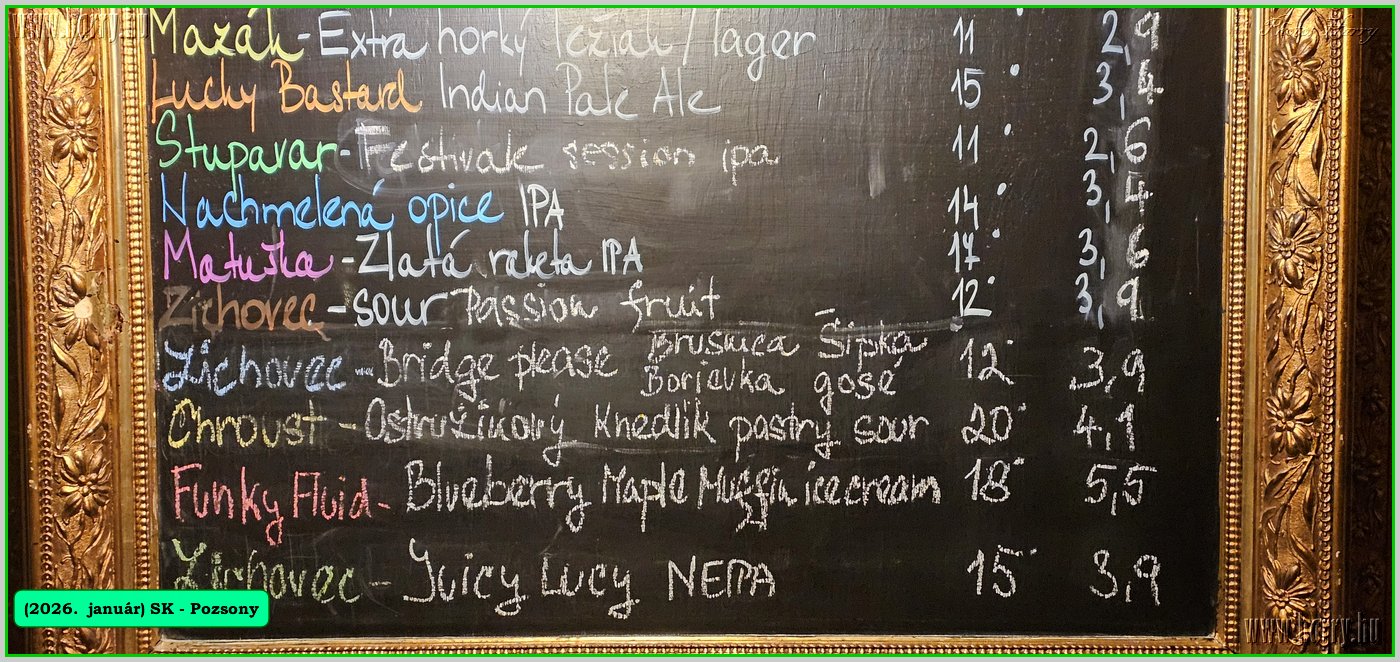 Mazák - Extra horký ležiak / lager 11° 2,9
Lucky Bastard Indian Pale Ale 15° 3,4
Stupavar - Festivale session ipa 11° 2,6
Nachmelená opice IPA 14° 3,4
Matuška - Zlatá raketa IPA 17° 3,6
Zichovec - sour Passion fruit 12° 3,9
Zichovec - Bridge please Brusnica Šípka Borievka gose 12° 3,9
Chroust - Ostružinový Knedlík pastry sour 20° 4,1
Funky Fluid - Blueberry Maple Muffin icecream 18° 5,5
Zichovec - Juicy Lucy NEIPA 15° 3,9
(2026. január) SK - Pozsony